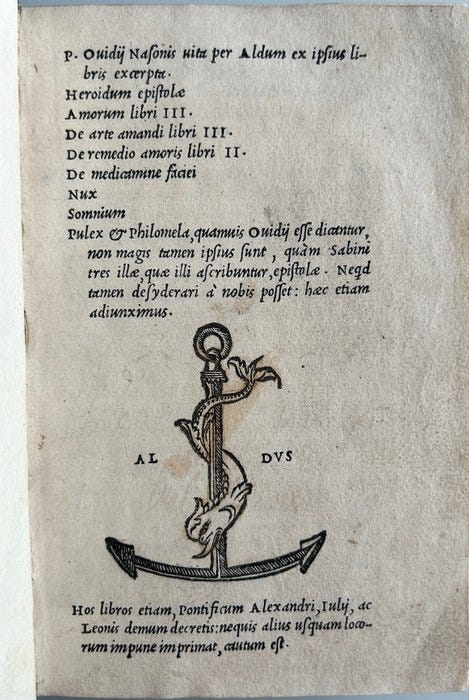 P. Ouidij Nasonis uita per Aldum ex ipsius li-
bris excerpta.
Heroidum epistolæ
Amorum libri III.
De arte amandi libri III.
De remedio amoris libri II.
De medicamine faciei
Nux
Somnium
Pulex & Philomela, quamuis Ouidij esse dicantur,
non magis tamen ipsius sunt, quàm Sabini
tres illæ, quæ illi ascribuntur, epistolæ. Neqd
tamen desyderari à nobis posset: hæc etiam
adiunximus.
AL DVS
Hos libros etiam, Pontificum Alexandri, Iulij, ac
Leonis demum decretis: nequis alius usquam loco-
rum impune imprimat, cautum est.